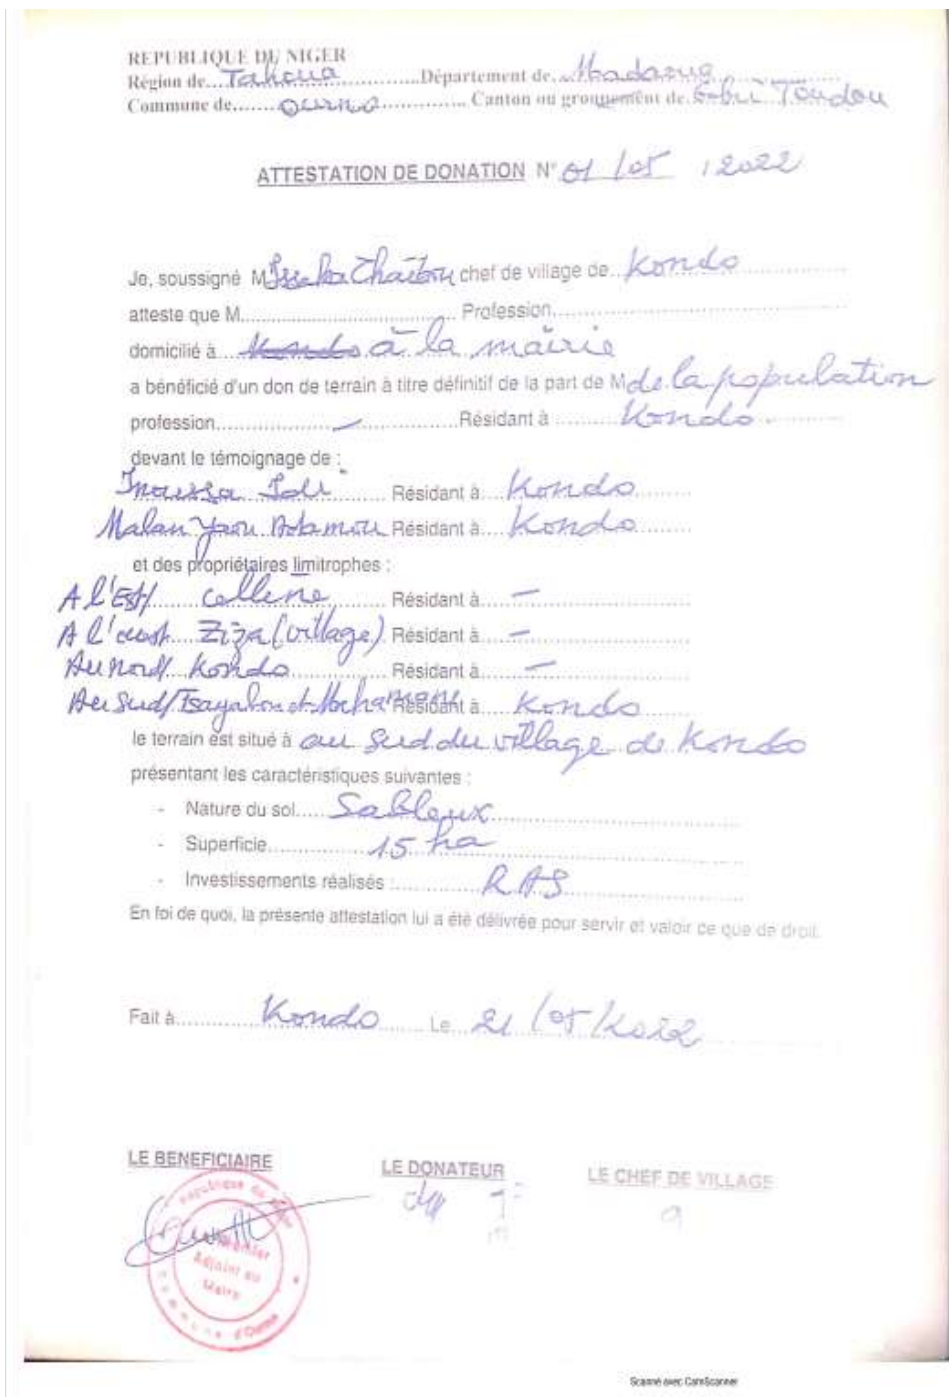 REPUBLIQUE DU NIGER
Région de...Tahoua...Département de...Madaoua...
Commune de...Ourno...Canton ou groupement de...Toudou
ATTESTATION DE DONATION N° 01 /05 /2022
Je, soussigné M Issaka Chaibou chef de village de...Kondo
atteste que M...Profession...
domicilié à...Kondo à la mairie
a bénéficié d'un don de terrain à titre définitif de la part de M de la population
profession...—...Résidant à...Kondo...
devant le témoignage de :
Inoussa Sali...Résidant à...Kondo...
Malan Yaou Adamou Résidant à...Kondo...
et des propriétaires limitrophes :
A l'Est/...colline...Résidant à...—...
A l'ouest...Ziza (village) Résidant à...—...
Au nord/ Kondo...Résidant à...—...
Au Sud/ Tsayabou et Mahamane Résidant à...Kondo...
le terrain est situé à au sud du village de Kondo
présentant les caractéristiques suivantes :
- Nature du sol...Sableux...
- Superficie...15 ha...
- Investissements réalisés :...RAS...
En foi de quoi, la présente attestation lui a été délivrée pour servir et valoir ce que de droit.
Fait à...Kondo...Le...21/05/2022
LE BENEFICIAIRE
LE DONATEUR
LE CHEF DE VILLAGE
République du Niger
Adjoint au
Maire
Commune d'Ourno
Scanné avec CamScanner